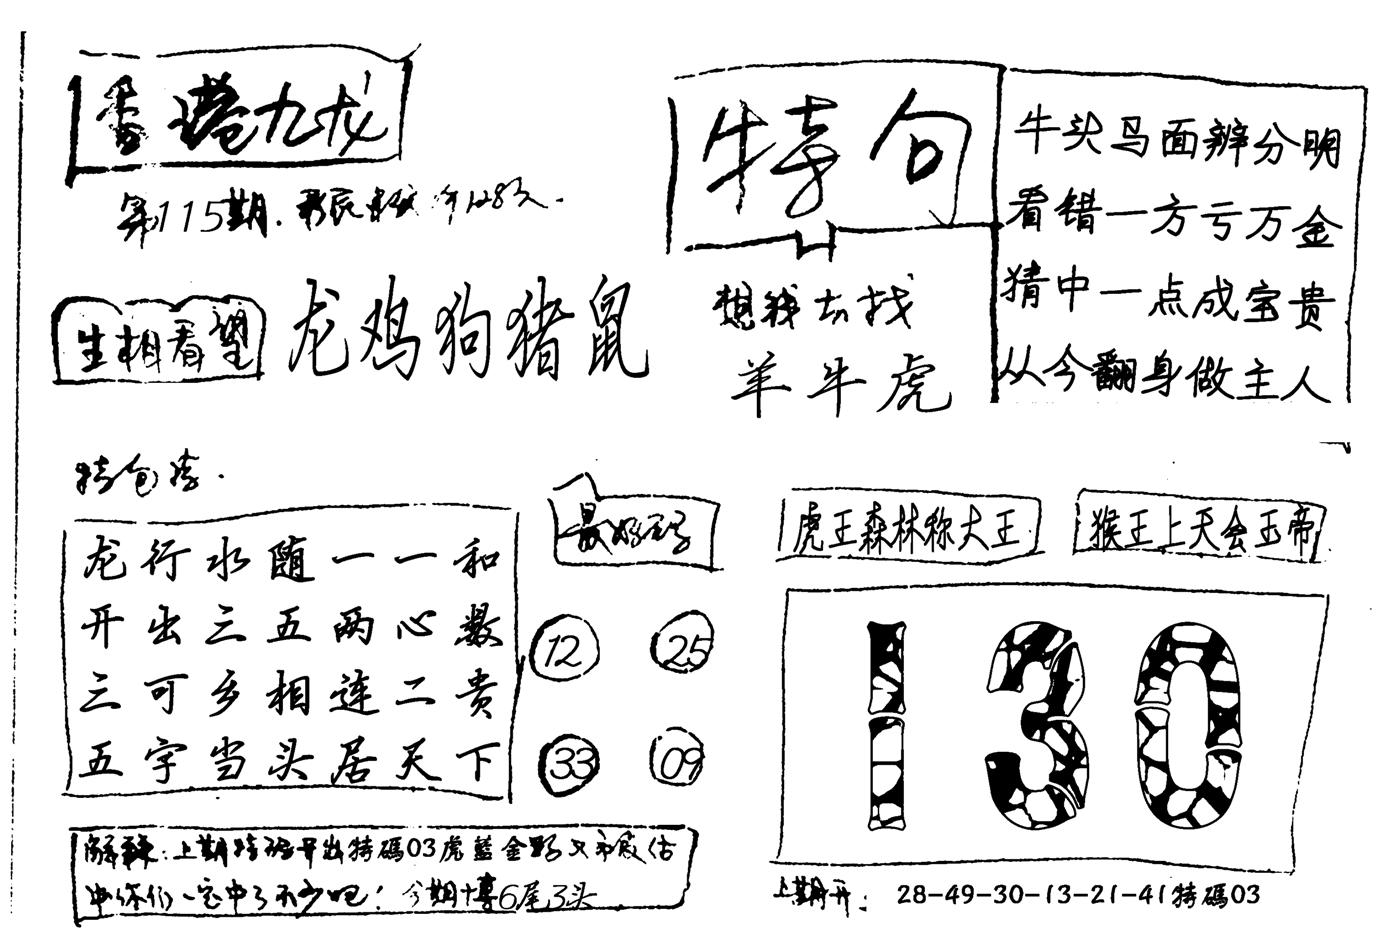 香港九龙
第115期.
生相看望
龙鸡狗猪鼠
特句
想钱去找
羊牛虎
牛头马面辨分明
看错一方亏万金
猜中一点成宝贵
从今翻身做主人
龙行水随一一和
开出三五两心数
三可乡相连二贵
五字当头居天下
最好码
12 25
33 09
虎王森林称大王
猴王上天会玉帝
130
解释:上期特码开出特碼03虎藍金野
中了不少吧! 今期博6尾3头
上期开: 28-49-30-13-21-41特碼03